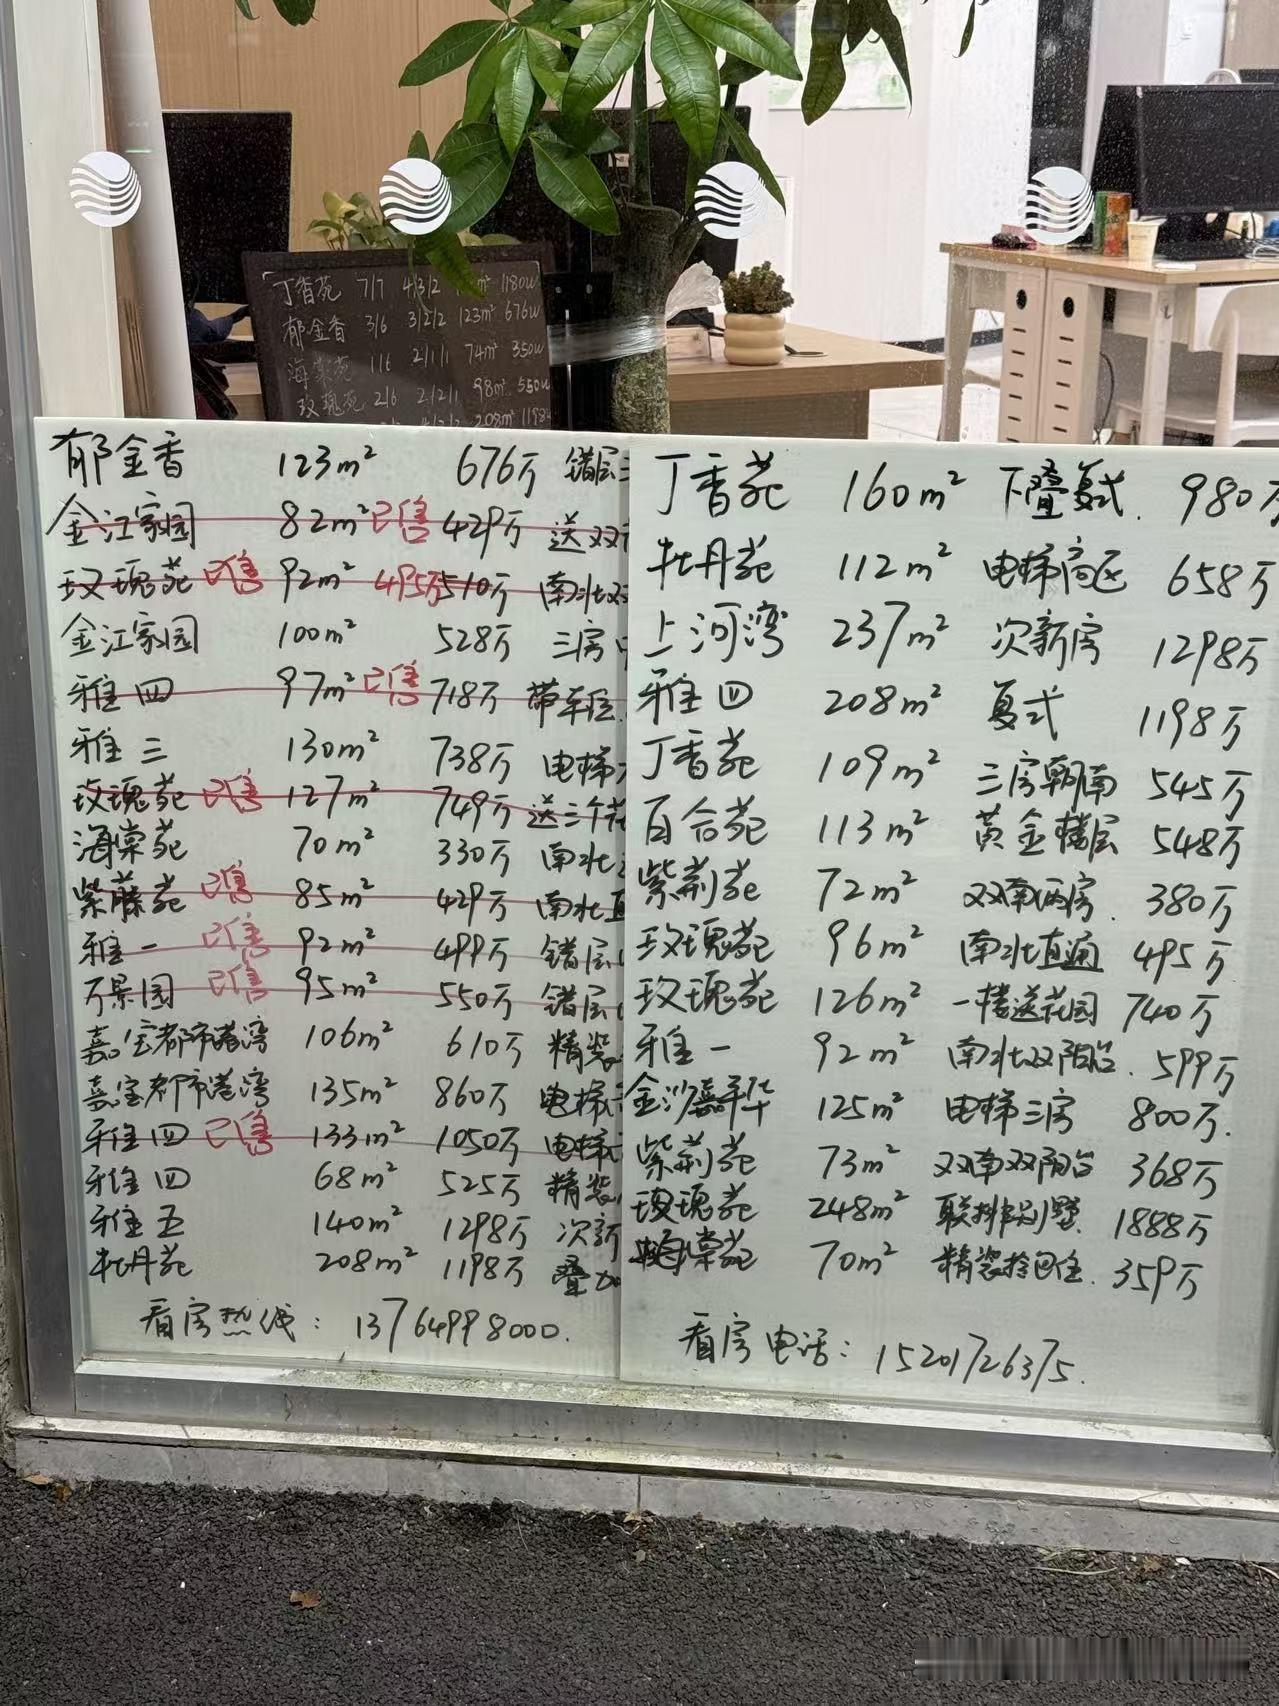 丁香苑 7/7 4/3/2 m² 1180W
郁金香 3/6 3/2/2 123m² 676W
海棠苑 1/6 2/1/1 74m² 350W
玫瑰苑 2/6 2/2/1 98m² 550W
4/2/2 208m² 1198
郁金香 123m² 676万 错层
金江家园 82m² 已售 429万 送双
玫瑰苑 已售 92m² 495万 510万 南北双
金江家园 100m² 528万 三房
雅四 97m² 已售 718万 带车位
雅三 130m² 738万 电梯
玫瑰苑 已售 127m² 749万 送三个花
海棠苑 70m² 330万 南北
紫藤苑 已售 85m² 429万 南北直
雅一 已售 92m² 499万 错层
万景园 已售 95m² 550万 错层
嘉宝都市港湾 106m² 610万 精装
嘉宝都市港湾 135m² 860万 电梯
雅四 已售 133m² 1050万 电梯
雅四 68m² 525万 精装
雅五 140m² 1298万 次新
牡丹苑 208m² 1198万 叠加
看房热线：13764998000.
丁香苑 160m² 下叠复式. 980万
牡丹苑 112m² 电梯高区 658万
上河湾 237m² 次新房 1298万
雅四 208m² 复式 1198万
丁香苑 109m² 三房朝南 545万
百合苑 113m² 黄金楼层 548万
紫荆苑 72m² 双南两房. 380万
玫瑰苑 96m² 南北直通 495万
玫瑰苑 126m² 一楼送花园 740万
雅一 92m² 南北双阳台. 599万
金沙嘉年华 125m² 电梯三房 800万.
紫荆苑 73m² 双南双阳台 368万
玫瑰苑 248m² 联排别墅. 1888万
海棠苑 70m² 精装拎包住. 359万
看房电话：15201726375.